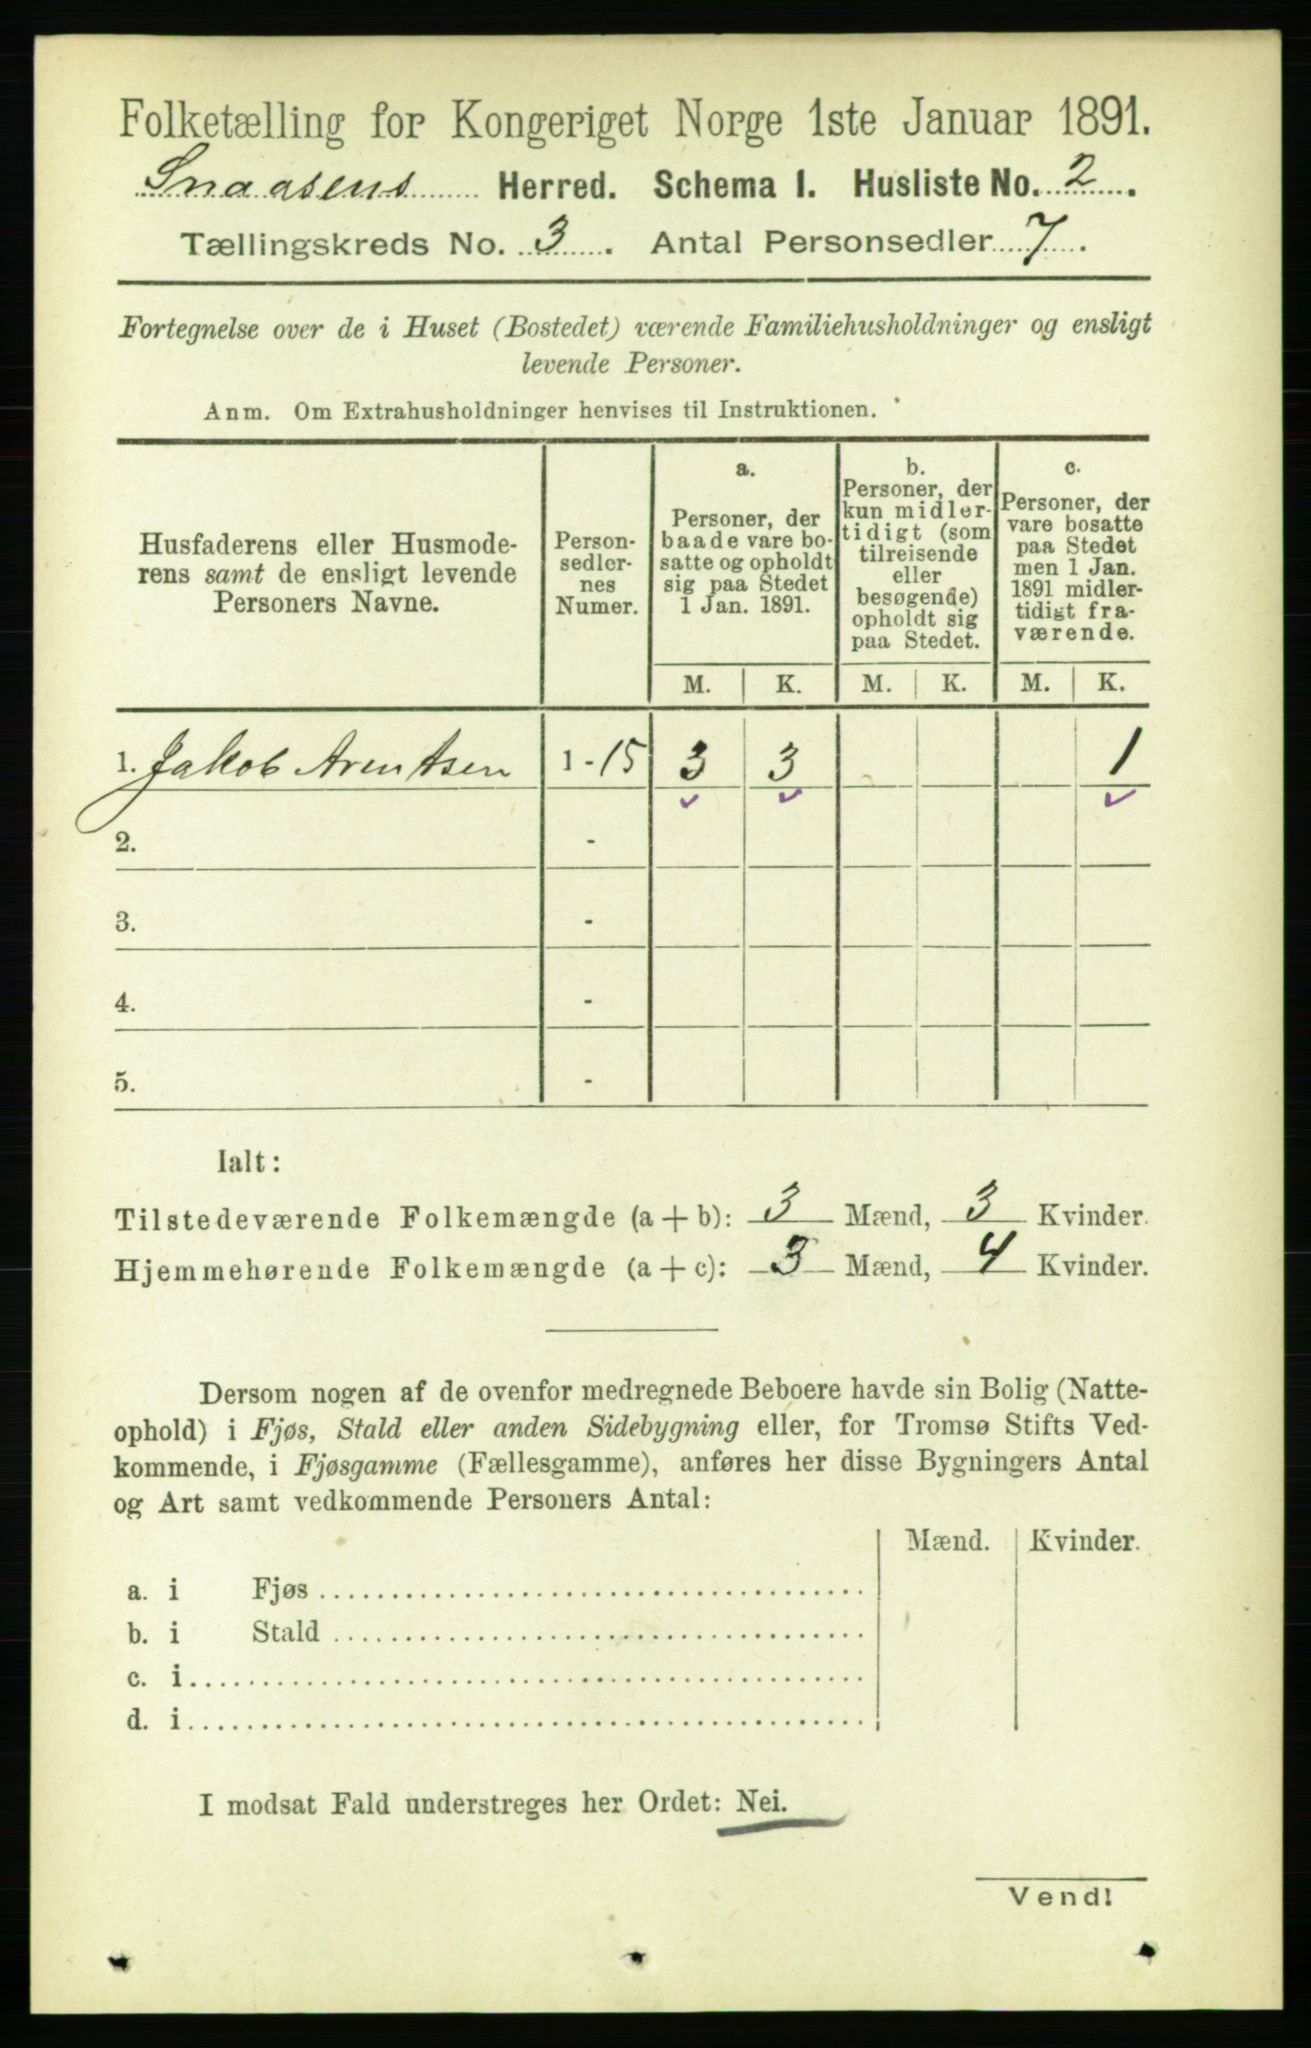 Folketælling for Kongeriget Norge 1ste Januar 1891.
Snaasens Herred. Schema I. Husliste No. 2.
Tællingskreds No. 3. Antal Personsedler 7.
Fortegnelse over de i Huset (Bostedet) værende Familiehusholdninger og ensligt
levende Personer.
Anm. Om Extrahusholdninger henvises til Instruktionen.
Husfaderens eller Husmode-
rens samt de ensligt levende
Personers Navne.
Person-
sedler-
nes
Numer.
a.
Personer, der
baade vare bo-
satte og opholdt
sig paa Stedet
1 Jan. 1891.
b.
Personer, der
kun midler-
tidigt (som
tilreisende
eller
besøgende)
opholdt sig
paa Stedet.
c.
Personer, der
vare bosatte
paa Stedet
men 1 Jan.
1891 midler-
tidigt fra-
værende.
M. K. M. K. M. K.
1. Jakob Arentsen 1 - 15 3 3 1
2. -
3. -
4. -
5. -
Ialt:
Tilstedeværende Folkemængde (a + b): 3 Mænd, 3 Kvinder.
Hjemmehørende Folkemængde (a + c): 3 Mænd, 4 Kvinder.
Dersom nogen af de ovenfor medregnede Beboere havde sin Bolig (Natte-
ophold) i Fjøs, Stald eller anden Sidebygning eller, for Tromsø Stifts Ved-
kommende, i Fjøsgamme (Fællesgamme), anføres her disse Bygningers Antal
og Art samt vedkommende Personers Antal:
Mænd. Kvinder.
a. i Fjøs
b. i Stald
c. i
d. i
I modsat Fald understreges her Ordet: Nei.
Vend!